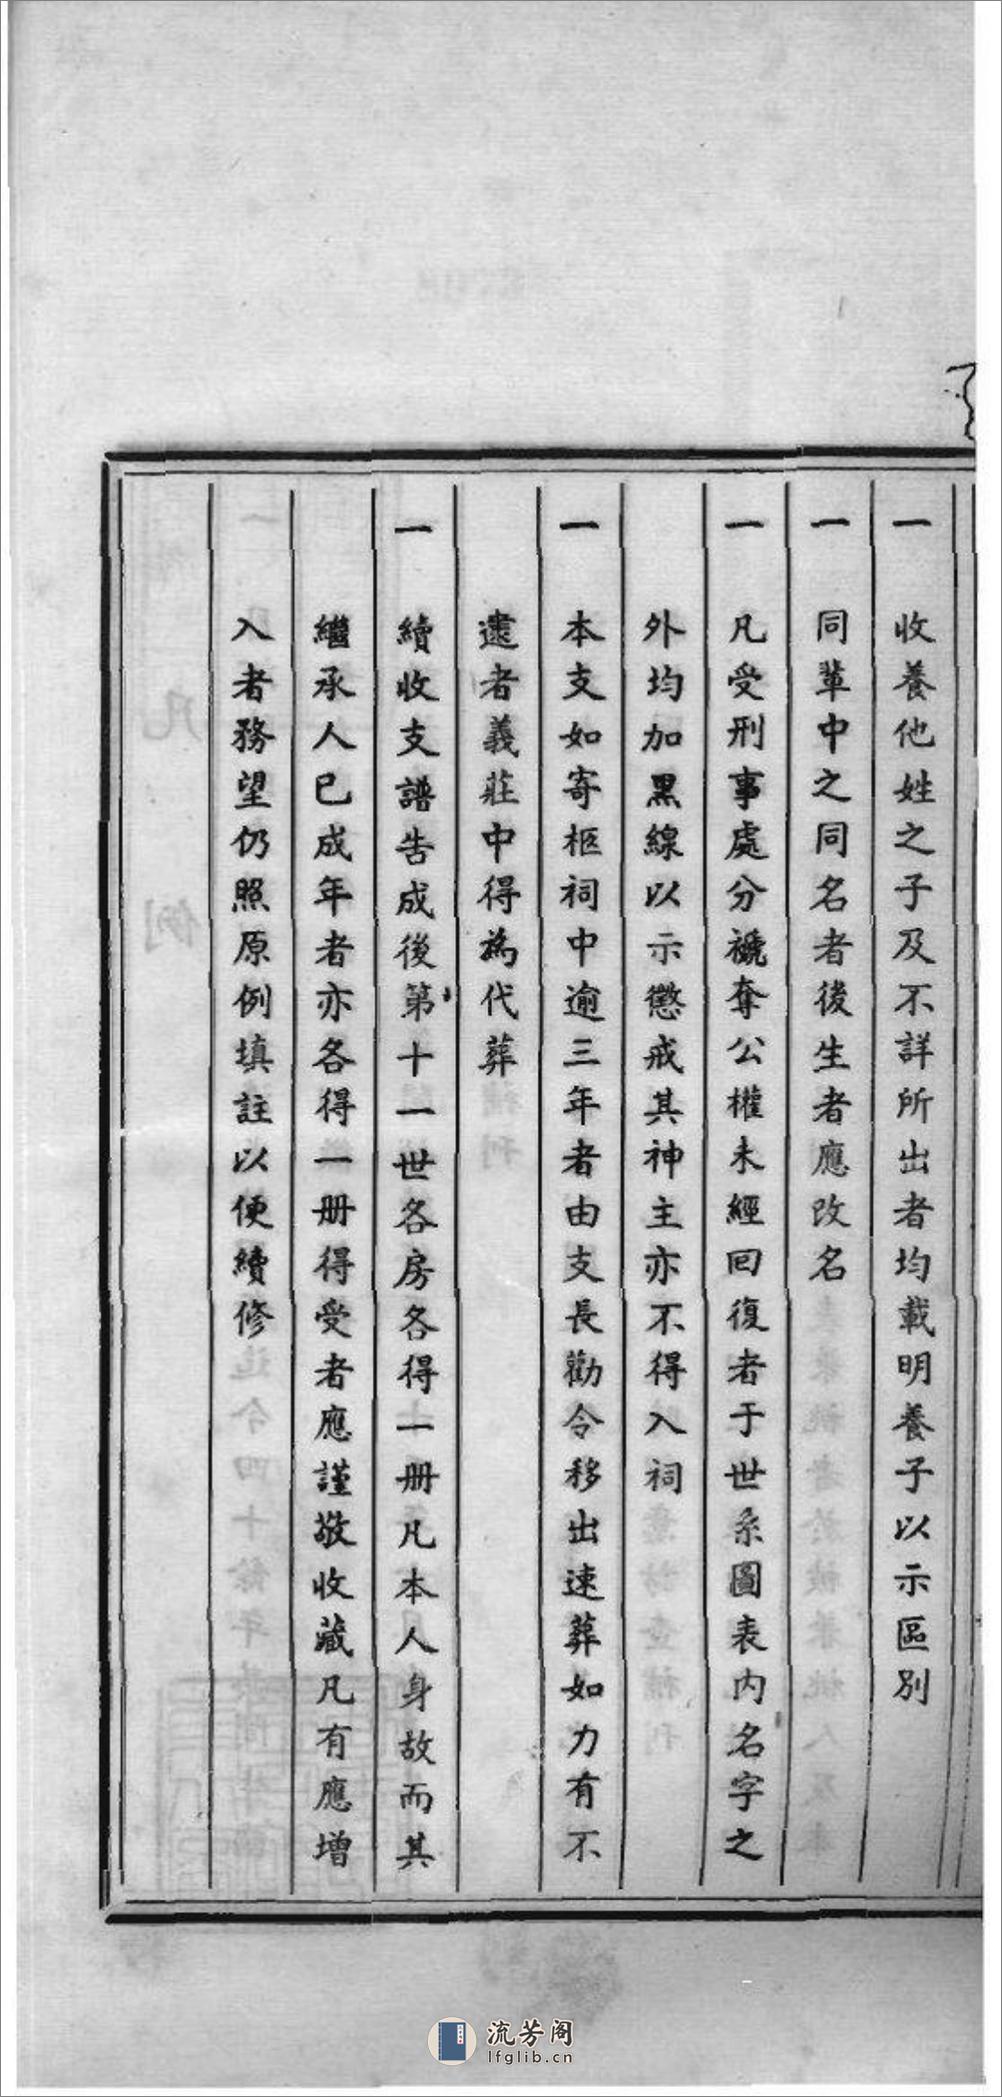 一 收養他姓之子及不詳所出者均載明養子以示區別
一 同輩中之同名者後生者應改名
一 凡受刑事處分褫奪公權未經回復者于世系圖表内名字之
外均加黑線以示懲戒其神主亦不得入祠
一 本支如寄柩祠中逾三年者由支長勸令移出速葬如力有不
逮者義莊中得為代葬
一 續收支譜告成後第十一世各房各得一册凡本人身故而其
繼承人已成年者亦各得一册得受者應謹敬收藏凡有應增
入者務望仍照原例填註以便續修
流芳阁
lfglib.cn